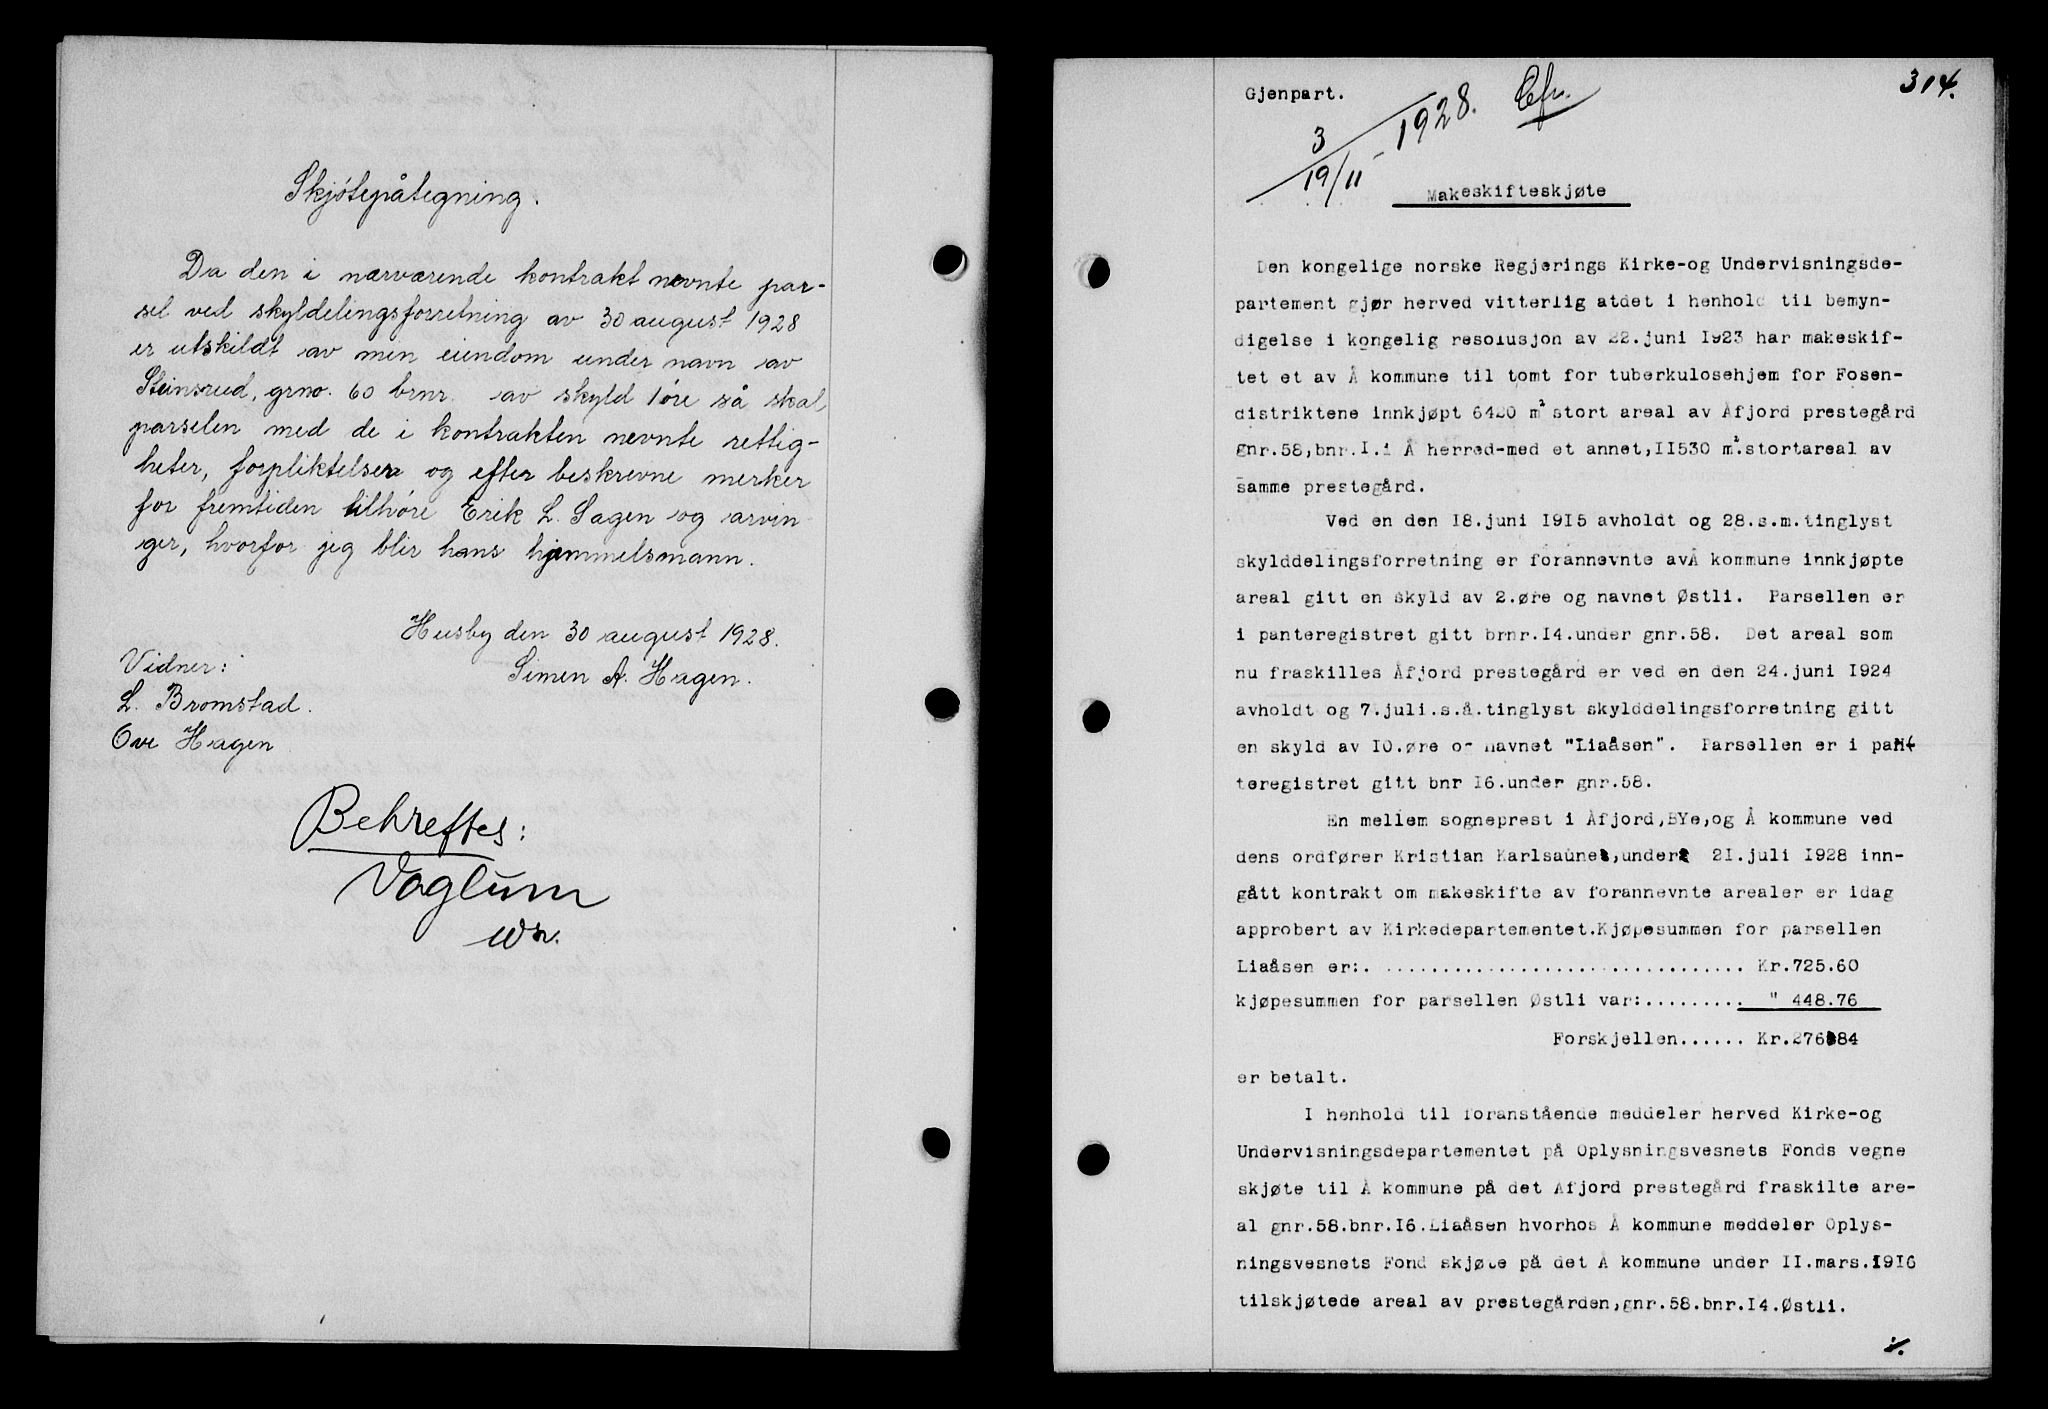 Skjøtepåtegning.
Da den i nærværende kontrakt nevnte par-
sel ved skyldelingsforretning av 30 august 1928
er utskildt av min eiendom under navn av
Steinsrud, grno. 60 brnr. av skyld 1 øre så skal
parselen med de i kontrakten nevnte rettig-
heter, forpliktelser og efter beskrevne merker
for fremtiden tilhøre Erik L. Sagen og arvin
ger, hvorfor jeg blir hans hjemmelsmann.
Husby den 30 august 1928.
Simen A. Hagen.
Vidner:
L. Bromstad.
Ove Hagen
Behreftes:
Voglum
Gjenpart.
3
19/11 1928.
314.
Makeskifteskjøte
Den kongelige norske Regjerings Kirke-og Undervisningsde-
partement gjør herved vitterlig atdet i henhold til bemyn-
digelse i kongelig resolusjon av 22.juni 1923 har makeskif-
tet et av Å kommune til tomt for tuberkulosehjem for Fosen-
distriktene innkjøpt 6420 m² stort areal av Åfjord prestegård
gnr.58,bnr.I.i Å herred-med et annet,II530 m².stortareal av
samme prestegård.
Ved en den 18.juni 1915 avholdt og 28.s.m.tinglyst
skylddelingsforretning er forannevnte avÅ kommune innkjøpte
areal gitt en skyld av 2.øre og navnet Østli. Parsellen er
i panteregistret gitt brnr.I4.under gnr.58. Det areal som
nu fraskilles Åfjord prestegård er ved en den 24.juni 1924
avholdt og 7.juli.s.å.tinglyst skylddelingsforretning gitt
en skyld av 10.øre og navnet "Liaåsen". Parsellen er i pant
teregistret gitt bnr I6.under gnr.58.
En mellem sogneprest i Åfjord,BYe,og Å kommune ved
dens ordfører Kristian Karlsaune,under 21.juli 1928 inn-
gått kontrakt om makeskifte av forannevnte arealer er idag
approbert av Kirkedepartementet.Kjøpesummen for parsellen
Liaåsen er:................................. Kr.725.60
kjøpesummen for parsellen Østli var:......... " 448.76
Forskjellen...... Kr.276.84
er betalt.
I henhold til foranstående meddeler herved Kirke-og
Undervisningsdepartementet på Oplysningsvesnets Fonds vegne
skjøte til Å kommune på det Åfjord prestegård fraskilte are-
al gnr.58.bnr.I6.Liaåsen hvorhos Å kommune meddeler Oplys-
ningsvesnets Fond skjøte på det Å kommune under II.mars.1916
tilskjøtede areal av prestegården,gnr.58.bnr.I4.Østli.